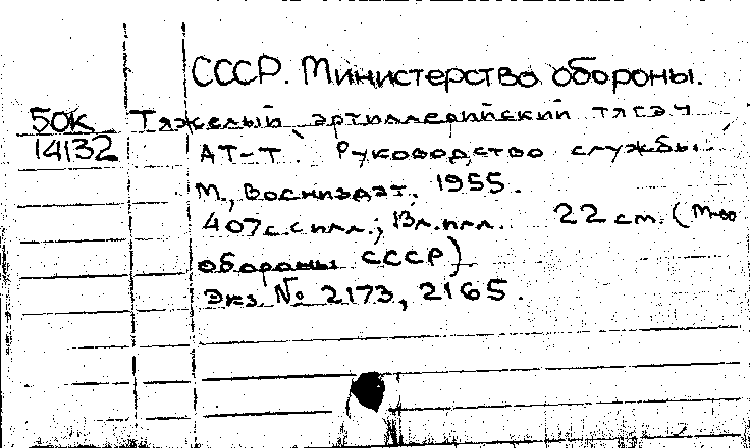 СССР. Министерство обороны.
50К Тяжелый артиллерийский тягач
14132 АТ-Т. Руководство службы.
М., Воениздат, 1955.
407 с. с илл.; 13 л. илл. 22 см. (М-во
обороны СССР)
Экз. № 2173, 2165.